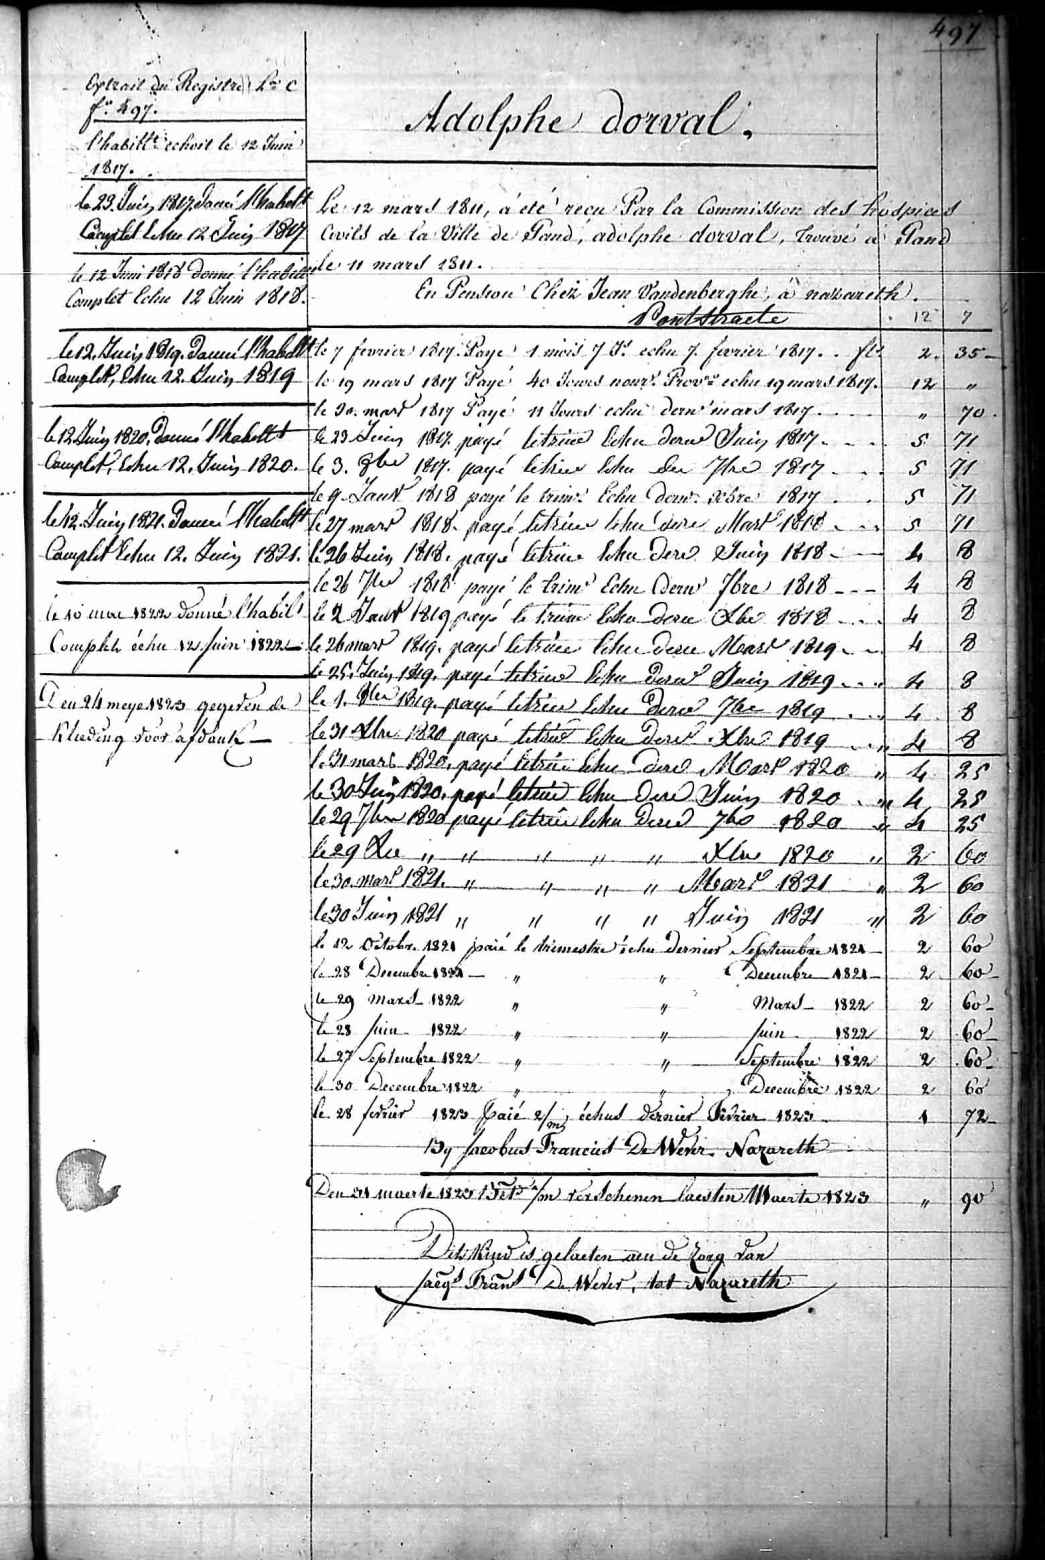 497
Extrait du Registre Lre C
fo. 497.
l'habillt echoit le 12 Juin
1817.
le 23. Juin 1817. donné l'habillt
Complet Echu 12 Juin 1817
le 12 Juin 1818 donné l'habillt
Complet Echu 12 Juin 1818.
le 12. Juin 1819. Donné l'habillt
Complet, Echu 12. Juin 1819
le 12 Juin 1820. donné l'habillt
Complet, Echu 12. Juin 1820.
le 12. Juin 1821. Donné l'habillt
Complet Echu 12. Juin 1821.
le 10 mai 1822 donné l'habillt
Complet échu 12 Juin 1822
Den 24 meye 1823 gegeven de
Kleeding voor afdank
Adolphe dorval.
Le 12 mars 1811, a été reçu Par la Commission des hospices
Civils de la Ville de Gand, adolphe dorval, trouvé à Gand
le 11 mars 1811.
En Pension Chez Jean Vandenberghe, à nazareth.
Pontstraete 12 7
le 7 fevrier 1817. Payé 1 mois 7 Js. echu 7. fevrier 1817. fls 2. 35
le 19 mars 1817 Payé 40 Jours nourr. Prov. echu 19 mars 1817. 12 "
le 30. mars 1817 Payé 11 Jours echu dern. mars 1817 " 70.
le 23 Juin 1817. payé le trim. Echu dern. Juin 1817 5 71
le 3. 8bre 1817. payé le trim. Echu der. 7bre 1817 5 71
le 9. Janv. 1818 payé le trim. Echu dern. Xbre 1817 5 71
le 27 mars 1818. payé le trim. Echu dern. Mars 1818 5 71
le 26 Juin 1818. payé le trim. Echu dern. Juin 1818 4 8
le 26 7bre 1818 payé le trim. Echu dern. 7bre 1818 4 8
le 2 Janv. 1819 payé le trim. Echu dern. Xbre 1818 4 8
le 26 mars 1819. payé le trim. Echu dern. Mars 1819 4 8
le 25. Juin 1819. payé le trim. Echu dern. Juin 1819 4 8
le 1. 8bre 1819. payé le trim. Echu dern. 7bre 1819 4 8
le 31 Xbre 1820 payé le trim. Echu dern. Xbre 1819 " 4 8
le 31 mars 1820. payé le trim. Echu dern. Mars 1820 " 4 25
le 30 Juin 1820. payé le trim. Echu dern. Juin 1820 " 4 25
le 29 7bre 1820 payé le trim. Echu dern. 7bre 1820 " 4 25
le 29 Xbre " " " " " Xbre 1820 " 2 60
le 30. mars 1821. " " " " Mars 1821 " 2 60
le 30 Juin 1821 " " " " Juin 1821 " 2 60
le 12 Octobre 1821 paié le trimestre échu dernier Septembre 1821 2 60
le 28 Decembre 1821 " " Decembre 1821 2 60
le 29 Mars 1822 " " Mars 1822 2 60
le 28 juin 1822 " " juin 1822 2 60
le 27 Septembre 1822 " " Septembre 1822 2 60
le 30 Decembre 1822 " " Decembre 1822 2 60
le 28 fevrier 1823 Paié 2/m échus dernier Fevrier 1823 1 72
By Jacobus Francies De Wever. Nazareth
Den 31 maerte 1823 1/m verschenen laesten Maerte 1823 " 90
Dit Kind is gelaeten aen de Zorg van
Jacqs Frans De Wever, tot Nazareth